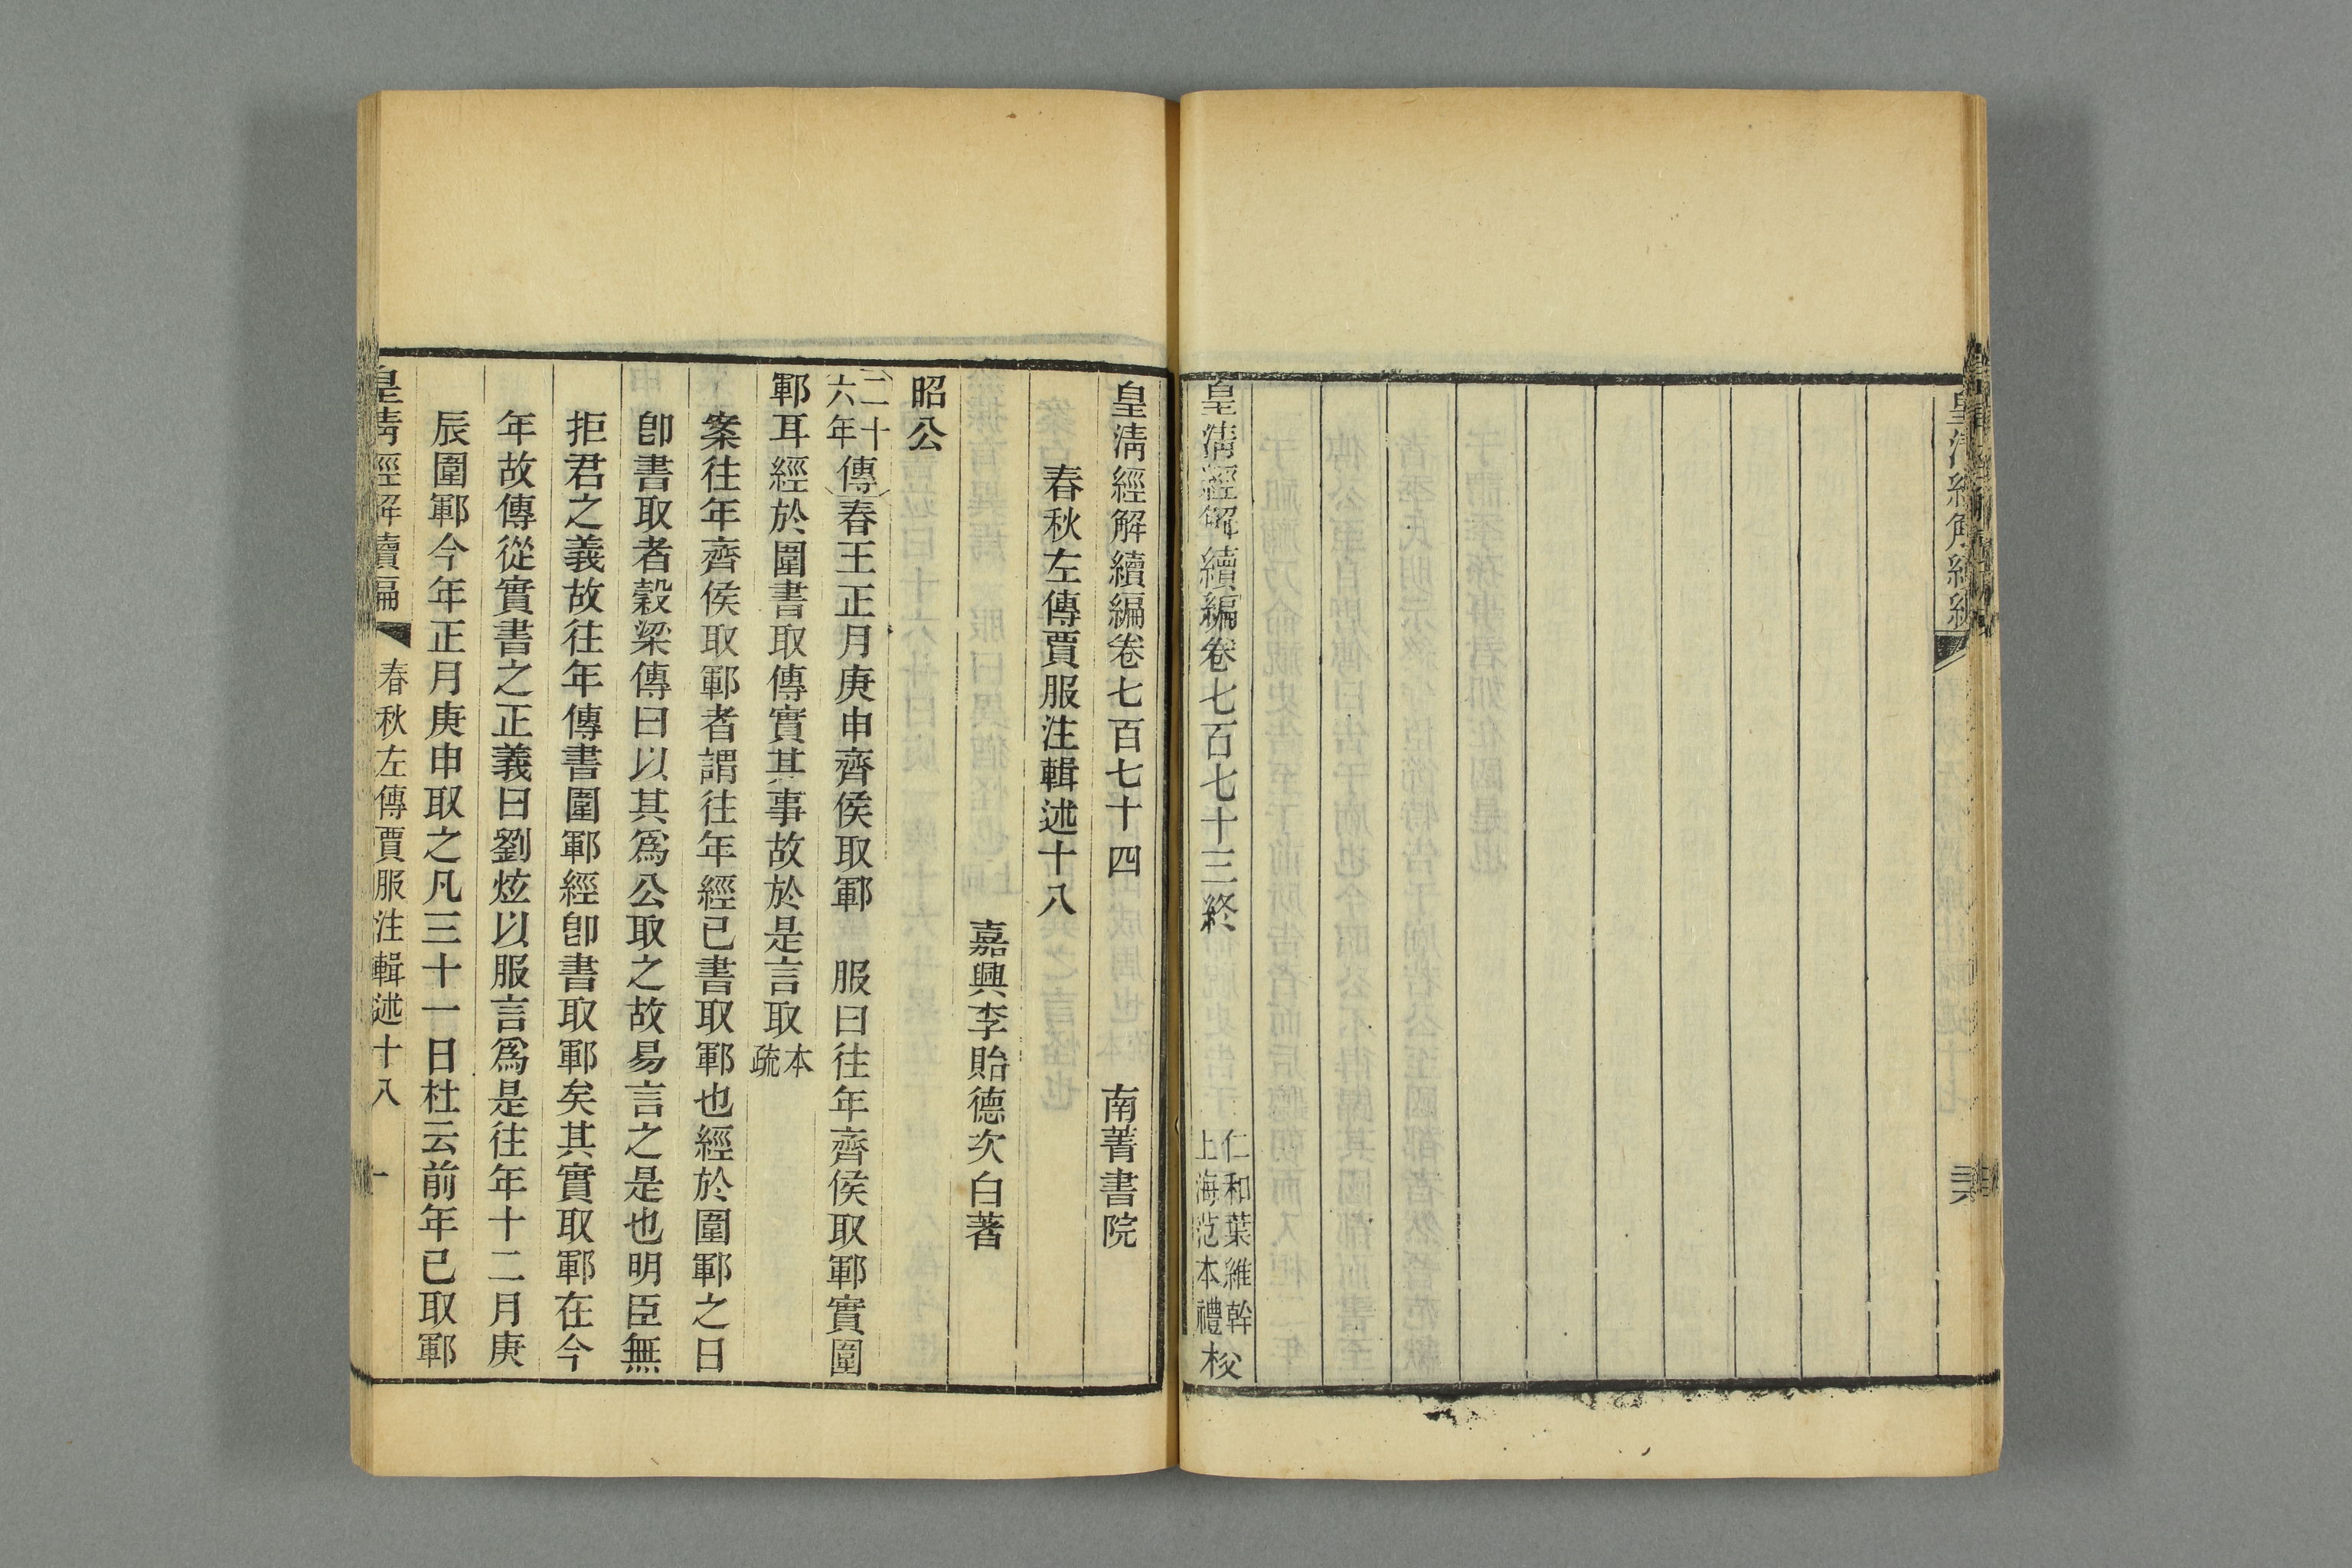 皇清經解續編卷七百七十三終
仁和葉維幹
上海范本禮
校
皇清經解續編卷七百七十四
南菁書院
春秋左傳賈服注輯述十八
嘉興李貽德次白著
昭公
二十六年傳春王正月庚申齊侯取鄆 服曰往年齊侯取鄆實圍
鄆耳經於圍書取傳實其事故於是言取本疏
案往年齊侯取鄆者謂往年經已書取鄆也經於圍鄆之日
卽書取者穀梁傳曰以其爲公取之故易言之是也明臣無
拒君之義故往年傳書圍鄆經卽書取鄆矣其實取鄆在今
年故傳從實書之正義曰劉炫以服言爲是往年十二月庚
辰圍鄆今年正月庚申取之凡三十一日杜云前年已取鄆
皇清經解續編
春秋左傳賈服注輯述十八
一